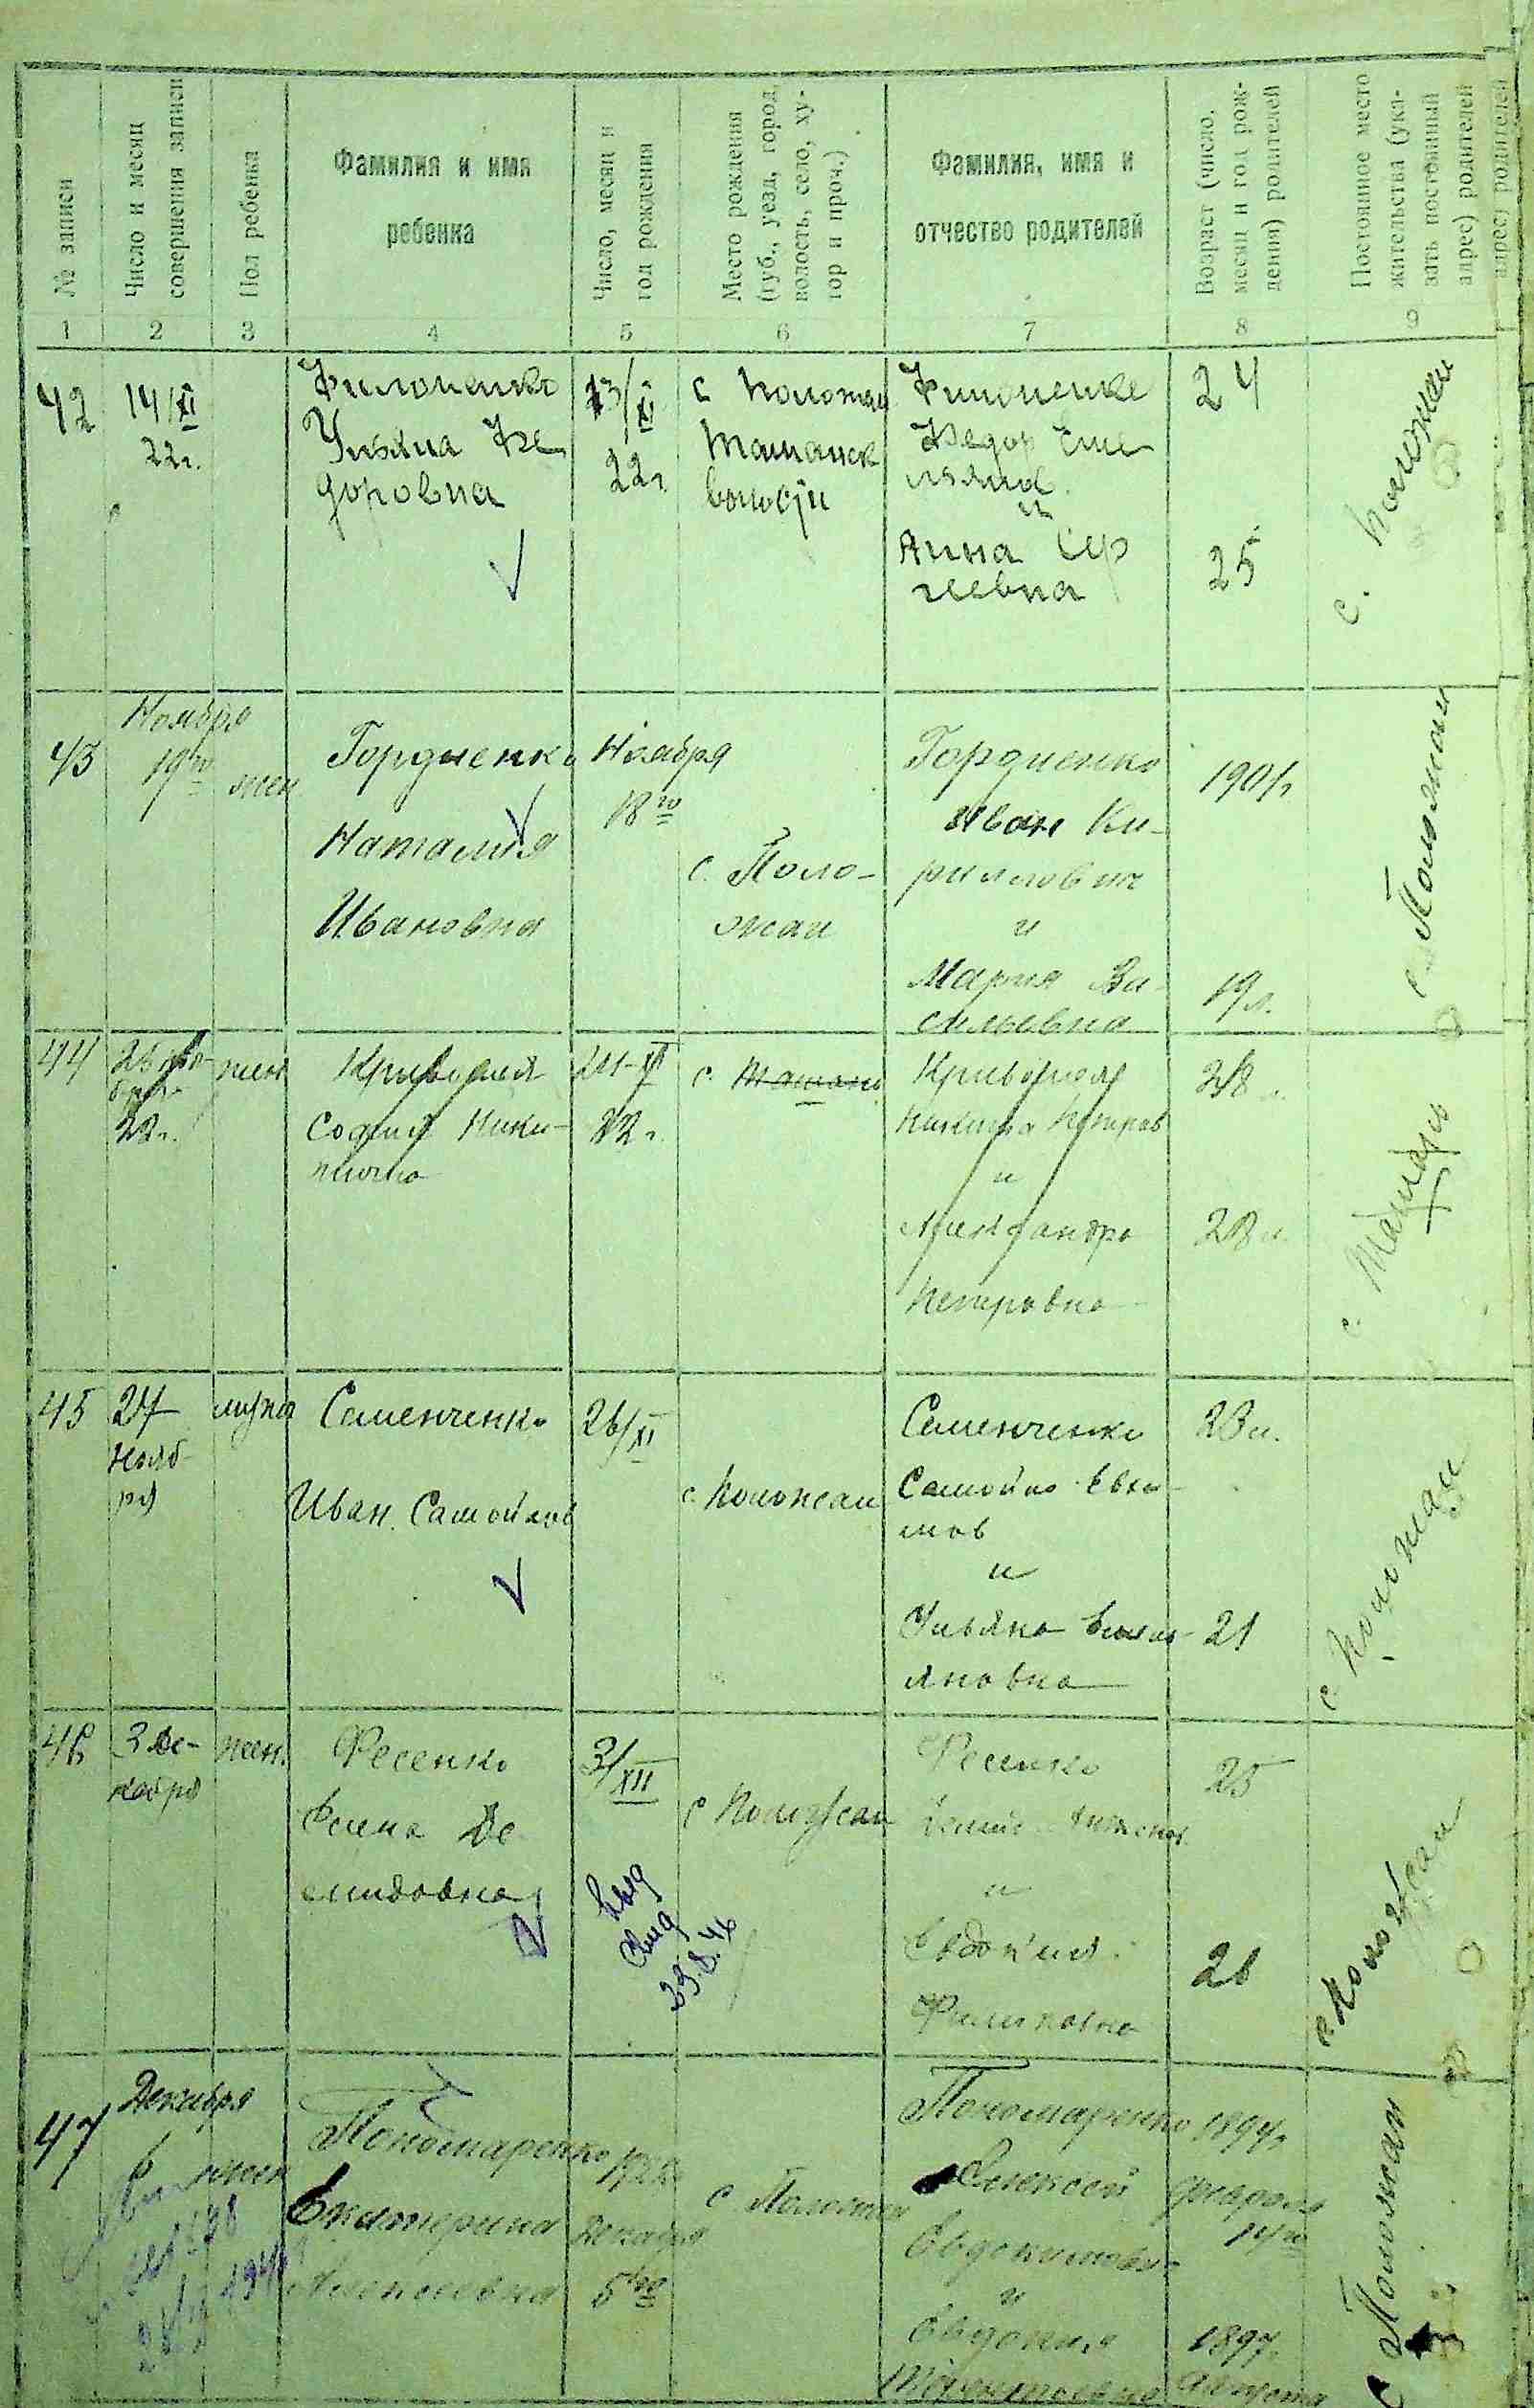 № записи
Число и месяц
совершения записи
Пол ребенка
Фамилия и имя
ребенка
Число, месяц и
год рождения
Место рождения
(губ., уезд, город,
волость, село, ху-
тор и проч.)
Фамилия, имя и
отчество родителей
Возраст (число,
месяц и год рож-
дения) родителей
Постоянное место
жительства (ука-
зать постоянный
адрес) родителей
адрес) родителей
1 2 3 4 5 6 7 8 9
42
14/XI
22г.
Филоненко
Ульяна Фе
доровна
13/XI
22г.
с Положаи
Ташанск
волости
Филоненко
Федор Еме
льянов
и
Анна Сер
геевна
24
25
с. Положаи
43
Ноября
19го
жен
Гордиенко
Наталия
Ивановна
Ноября
18го
с. Поло-
жаи
Гордиенко
Иван Ки-
риллович
и
Мария Ва-
сильевна
1901г.
19л.
с. Положаи
44
22г.
жен
София Ники-
тична
24-XI
22г.
с. Ташань
Никита Петров
и
Александра
Петровна
28л.
с. Ташань
45
27
Нояб-
ря
мужс
Семенченко
Иван Самойлов
26/XI
с. Положаи
Семенченко
Самойло Евфи-
мов
и
Ульяна Емель-
яновна
23л.
21
с. Положаи
46
3 Де-
кабря
жен.
Фесенко
Елена Де
мидовна
3/XII
с Положаи
Фесенко
и
Евдокия
Филиповна
25
26
с. Положаи
47
Декабря
6
жен
Пономаренко
Екатерина
Алексеевна
1922г.
Декабря
5го
с Положаи
Пономаренко
Алексей
Евдокимов.
и
Евдокия
1897г.
Февраля
1897г.
Августа
с Положаи